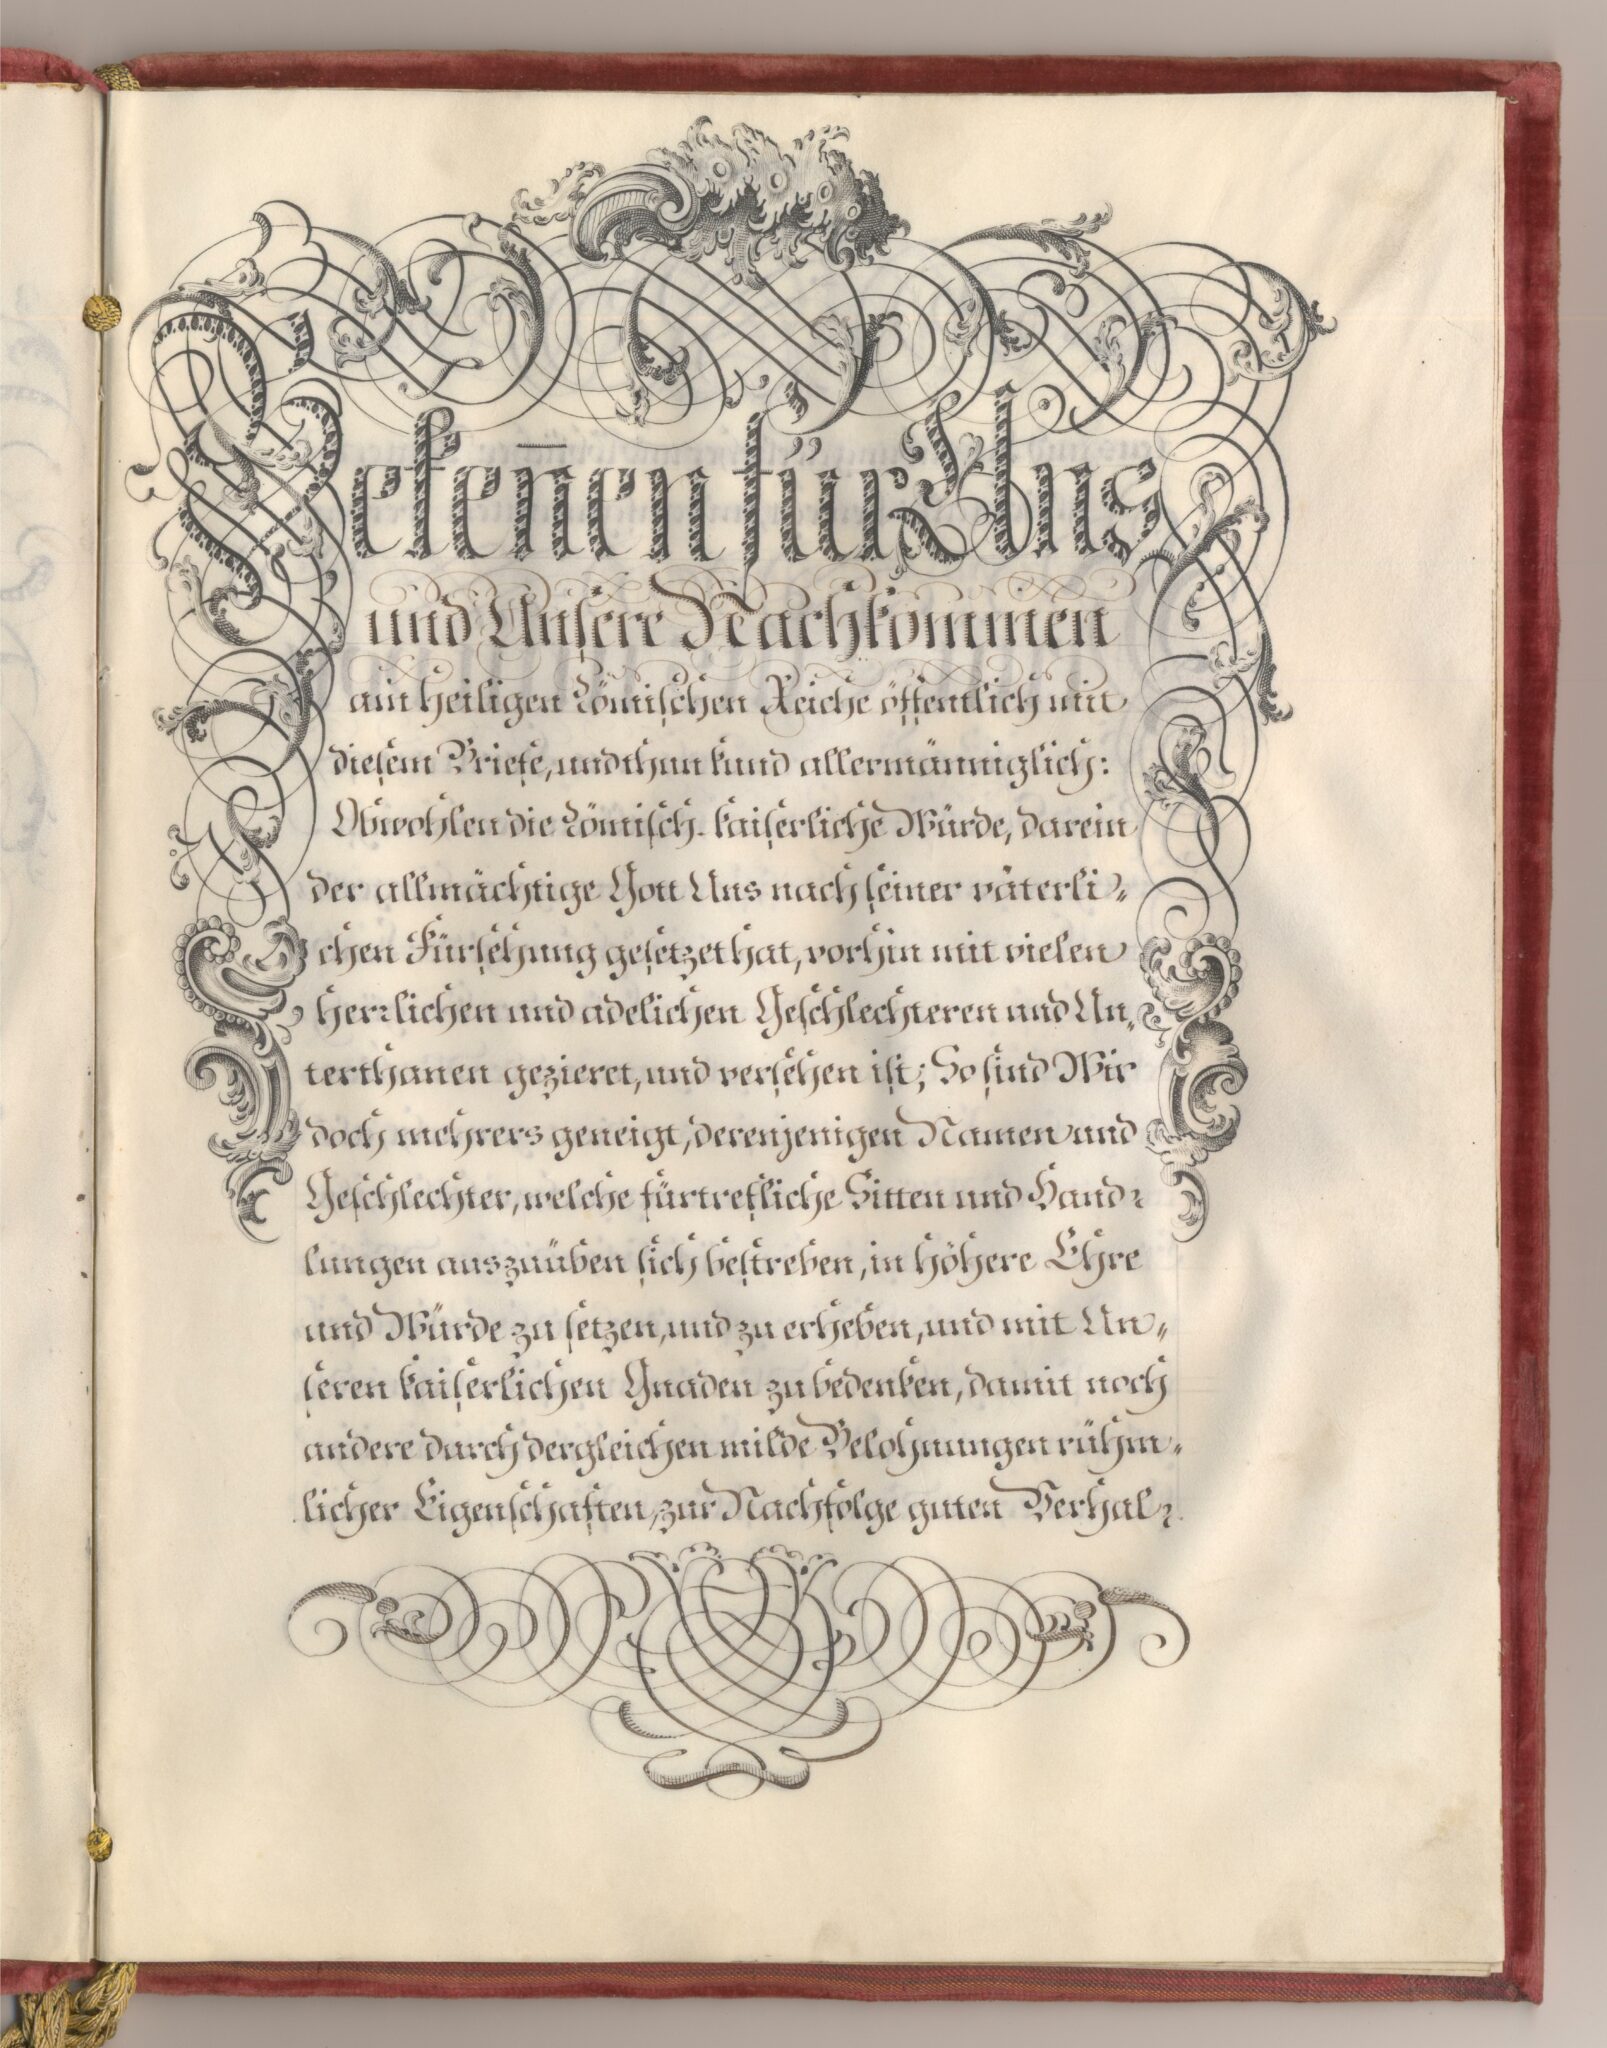 Bekeñen für Uns
und Unsere Nachkommen
am heiligen Römischen Reiche öffentlich mit
diesem Briefe, und thun kund allermänniglich:
Obwohlen die Römisch-kaiserliche Würde, darein
der allmächtige Gott Uns nach seiner väterli-
chen Fürsehung gesetzet hat, vorhin mit vielen
herrlichen und adelichen Geschlechteren und Un-
terthanen gezieret, und versehen ist; So sind Wir
doch mehrers geneigt, derenjenigen Namen und
Geschlechter, welche fürtrefliche Sitten und Hand-
lungen auszuüben sich bestreben, in höhere Ehre
und Würde zu setzen, und zu erheben, und mit Un-
seren kaiserlichen Gnaden zu bedenken, damit noch
andere durch dergleichen milde Belohnungen rühm-
licher Eigenschaften, zur Nachfolge guten Verhal-